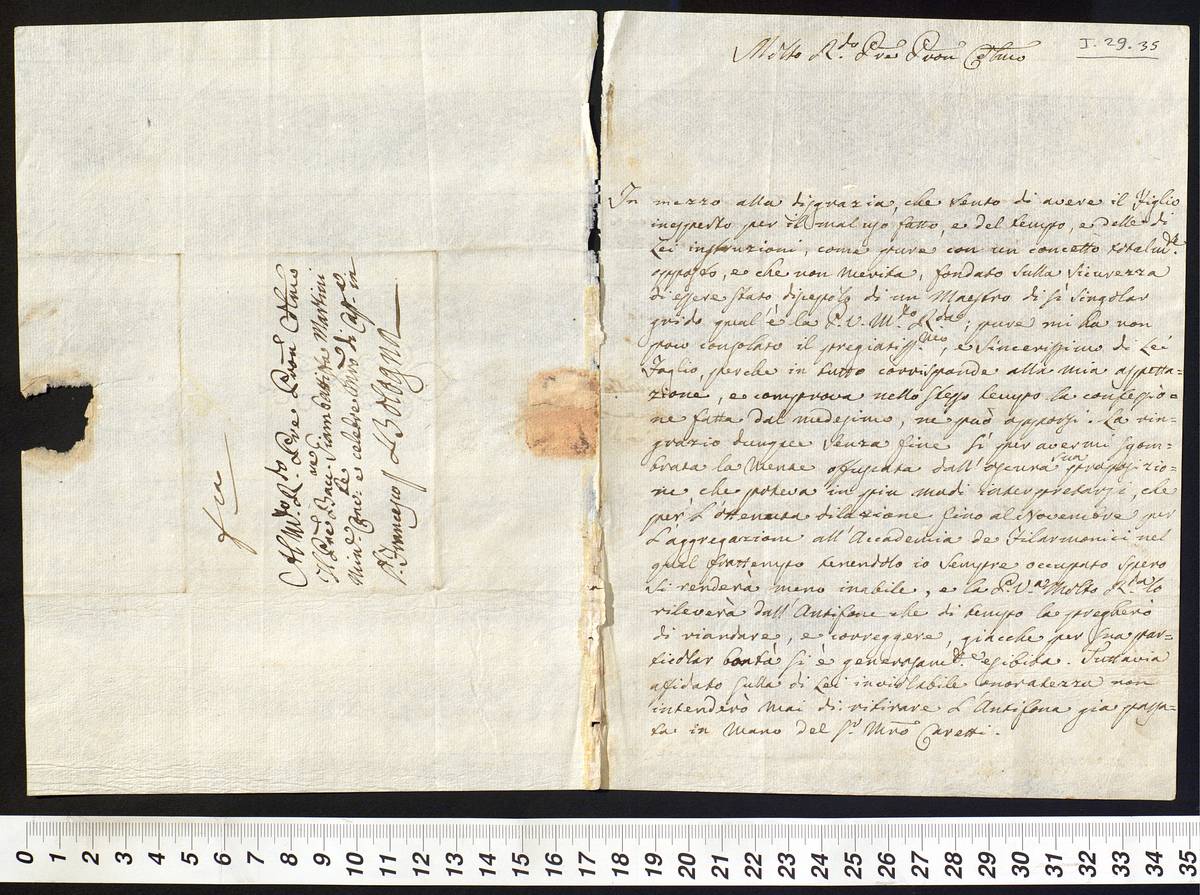 Al M.to R.do Pre Pron Osmo
Il Pre Bacc.re Giambattista Martini
Min.r Con.le e celebe. Mro di Capp.a in
S. Francesco Bologna
I. 29. 35
Molto R.do Pre Pron Osmo
In mezzo alla disgrazia, che sento di avere il Figlio
inesperto per il mal uso fatto, e del tempo, e delle di
Lei instruzioni, come pure con un concetto totalm.te
opposto, e che non merita, fondato sulla sicurezza
di essere stato discepolo di un Maestro di sì singolar
grido qual'è la P.V. M.to R.da; pure mi ha non
poco consolato il pregiatiss.mo, e sincerissimo di Lei
Foglio, perche in tutto corrisponde alla mia aspetta=
zione, e comprova nello stesso tempo la confessio=
ne fatta dal medesimo, ne può apporsi. La rin=
grazio dunque senza fine sì per avermi sgom=
brata la mente offuscata dall'oscura sua proposizio=
ne che poteva in piu modi interpretarsi, che
per l'ottenuta dilazione fino al Novembre per
l'aggregazione all'Accademia de Filarmonici nel
qual frattempo tenendolo io sempre occupato spero
si renderà meno inabile, e la P.V.a Molto R.da lo
rileverà dall'Antifone che di tempo la pregherò
di riandare, e correggere, giacche per sua par=
ticolar bontà si è generosam.te esibita. Tuttavia
affidato sulla di Lei inviolabile onoratezza non
intenderò mai di ritirare l'Antifona gia passa=
ta in mano del S.r Mro Caretti.
0 1 2 3 4 5 6 7 8 9 10 11 12 13 14 15 16 17 18 19 20 21 22 23 24 25 26 27 28 29 30 31 32 33 34 35